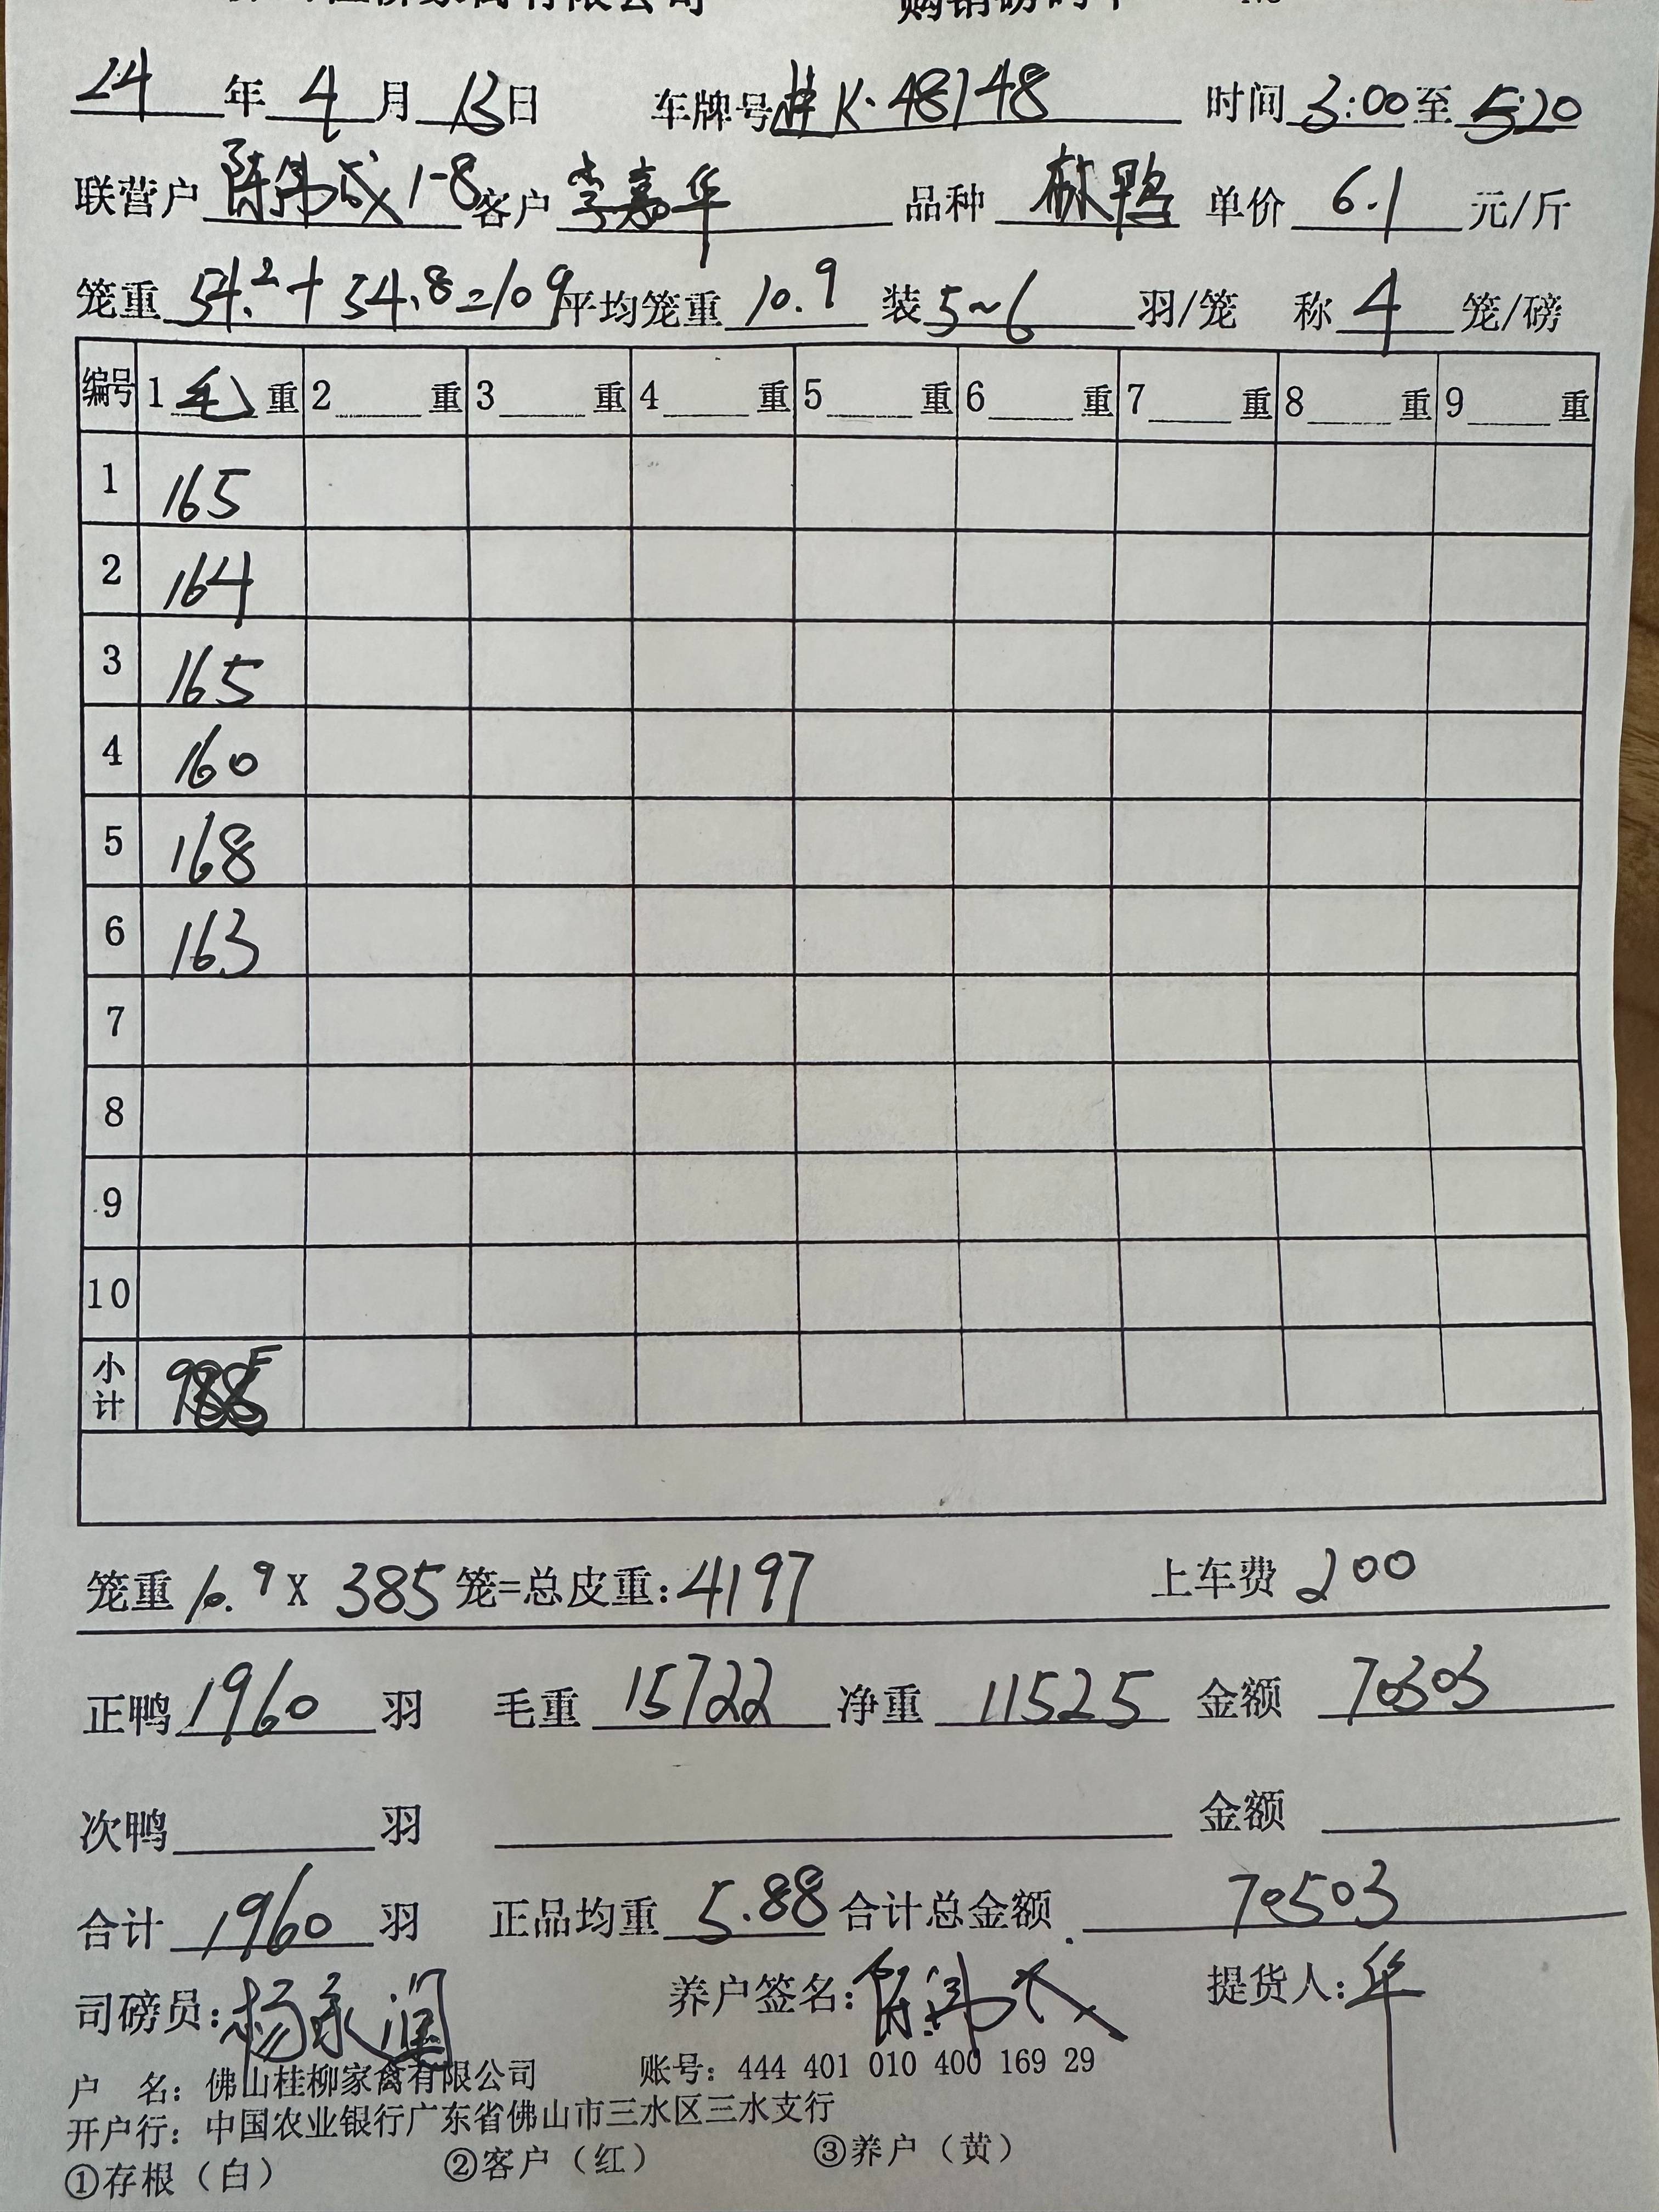 佛山桂柳家禽有限公司 购销磅码单 No
24年4月13日 车牌号桂K·48748 时间3:00至5:20
联营户 陈伟成1-8 客户 李嘉华 品种 麻鸭 单价 6.1 元/斤
笼重 54.2+54.8=109 平均笼重 10.9 装5~6羽/笼 称4笼/磅
编号 1毛重 2重 3重 4重 5重 6重 7重 8重 9重
1 165
2 164
3 165
4 160
5 168
6 163
7
8
9
10
小计 985
笼重10.9X385笼=总皮重:4197 上车费 200
正鸭1960羽 毛重 15722 净重 11525 金额 70303
次鸭 羽 金额
合计 1960 羽 正品均重 5.88 合计总金额 70503
司磅员:杨永润 养户签名:陈伟成 提货人:华
户 名:佛山桂柳家禽有限公司 账号:444 401 010 400 169 29
开户行:中国农业银行广东省佛山市三水区三水支行
①存根(白) ②客户(红) ③养户(黄)